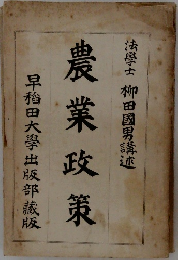 法學士 柳田國男講述
農業政策
早稲田大學出版部蔵版